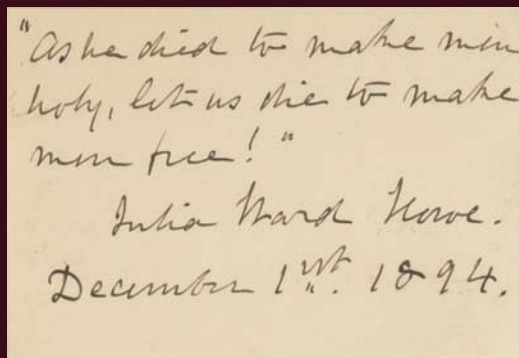 "As he died to make men
holy, let us die to make
men free!"
Julia Ward Howe.
December 1rst. 1894.